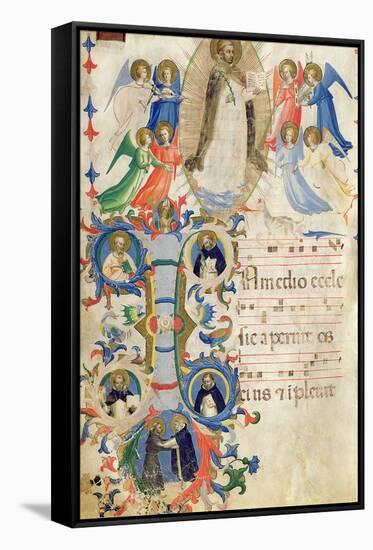 N medio eccle
sie aperuit os
eius et ipleuit